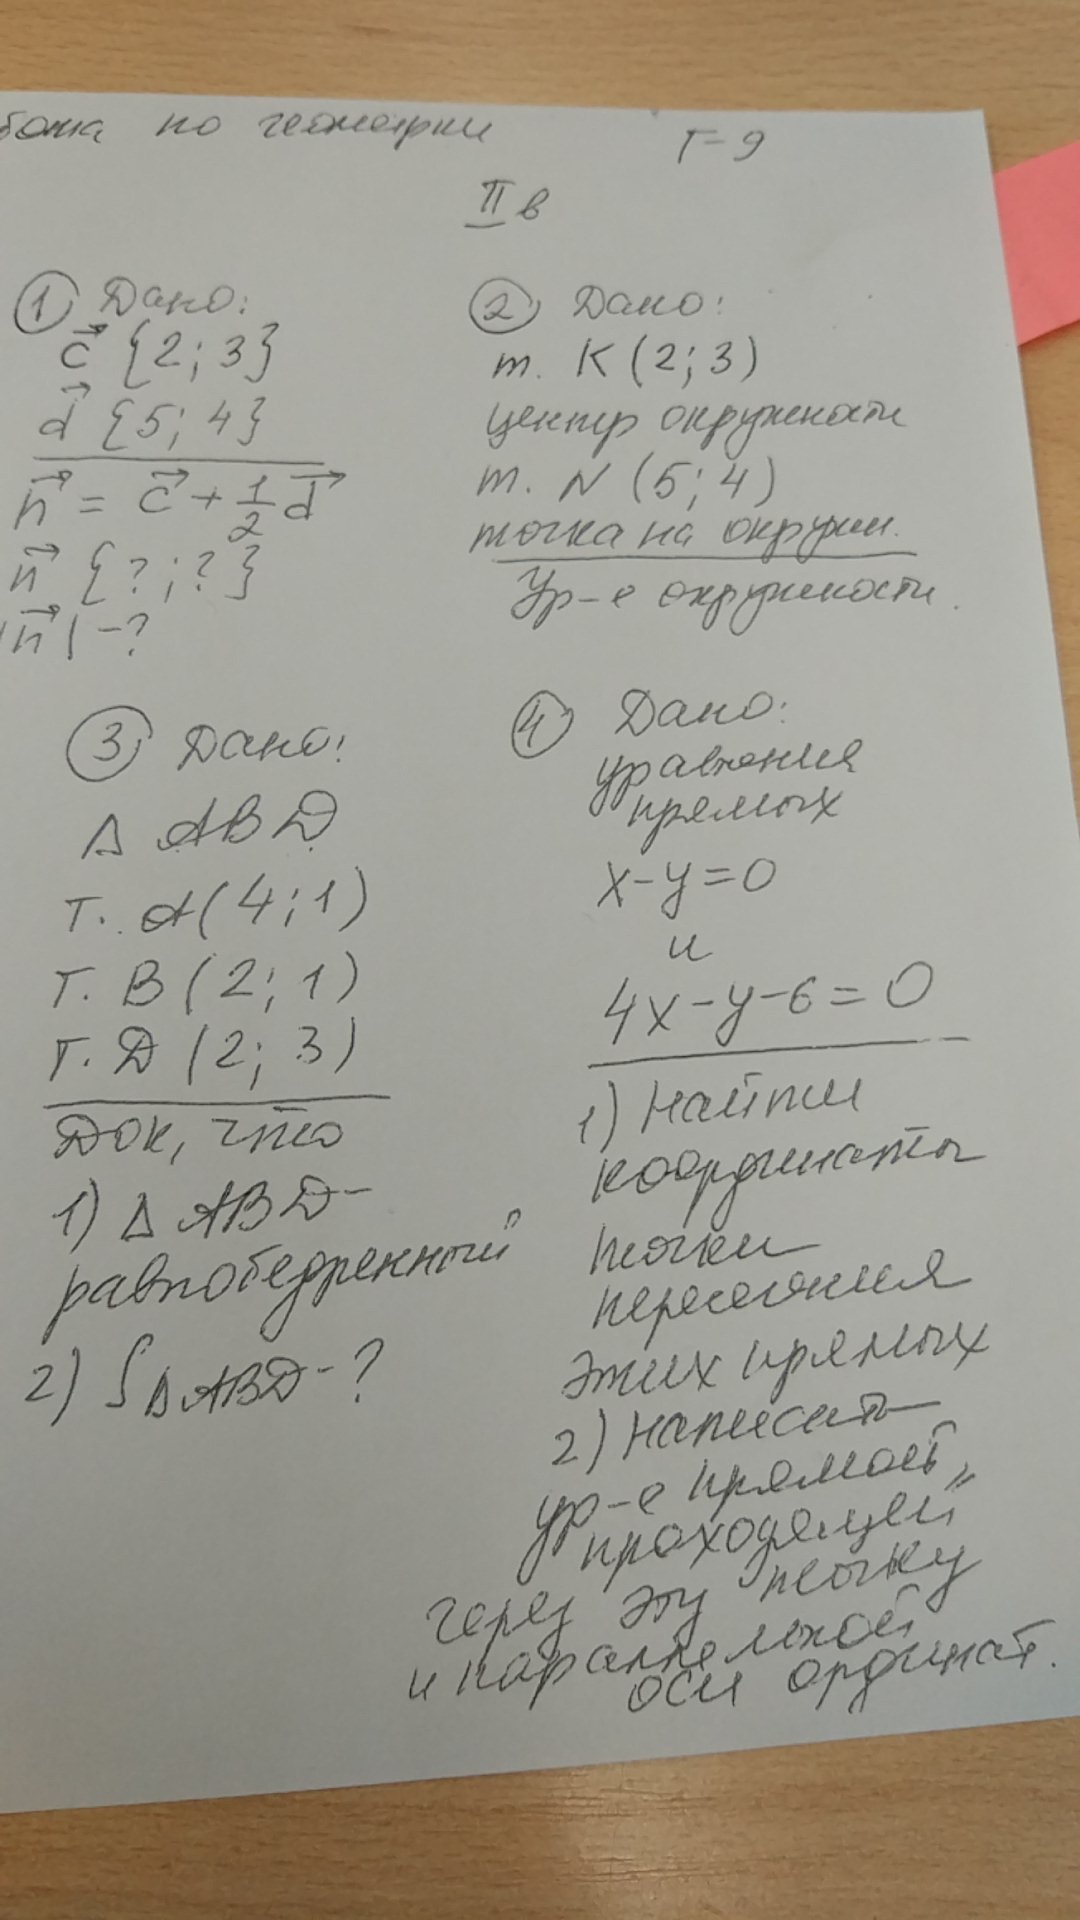 по геометрии Г-9
II в
① Дано:
c⃗ {2; 3}
d⃗ {5; 4}
n⃗ = c⃗ + 1/2 d⃗
n⃗ {?; ?}
|n⃗| -?
② Дано:
т. K (2; 3)
центр окружности
т. N (5; 4)
точка на окружн.
Ур-е окружности.
③ Дано:
Δ ABD
т. A(4; 1)
т. B (2; 1)
т. D (2; 3)
Док, что
1) Δ ABD -
равнобедренный
2) S Δ ABD - ?
④ Дано:
уравнения
прямых
x-y=0
и
4x-y-6=0
1) Найти
координаты
точки
пересечения
этих прямых
2) Написать
ур-е прямой,
проходящей
через эту точку
и параллельной
оси ординат.